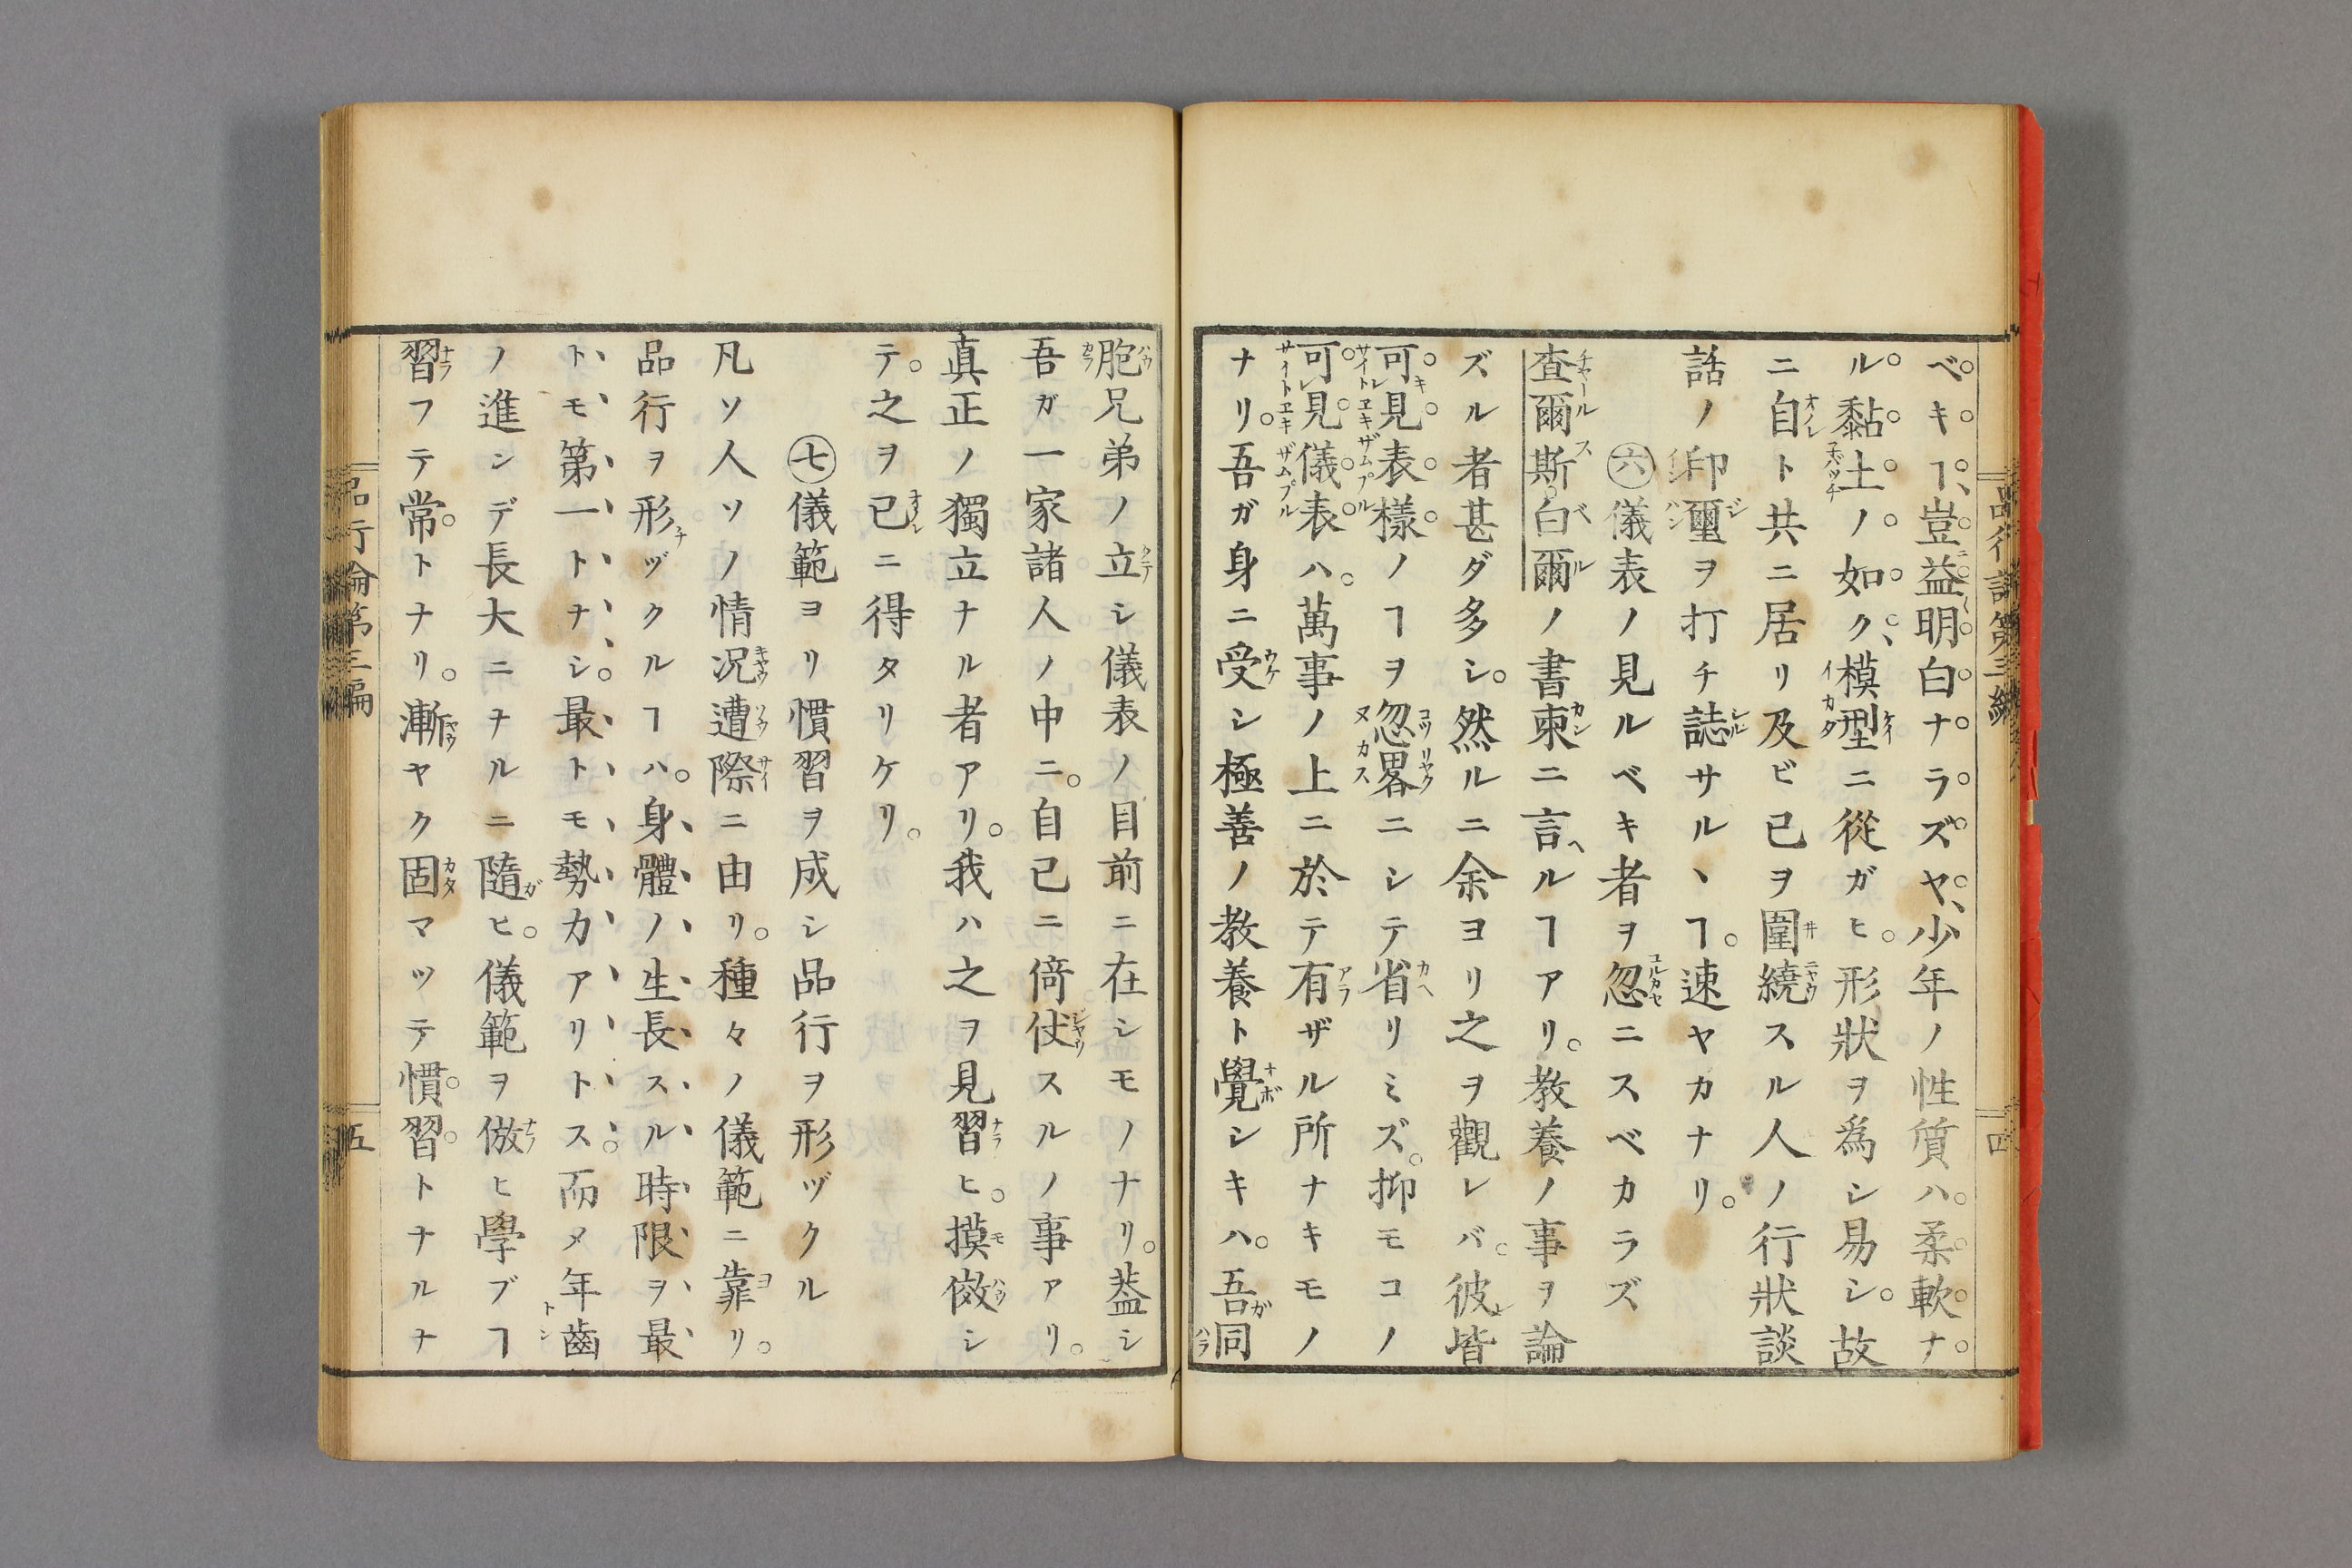 ベキヿ、豈益明白ナラズヤ、少年ノ性質ハ。柔軟ナ
ル黏土ノ如ク、模型ニ從ガヒ。形狀ヲ爲シ易シ。故
ニ自ト共ニ居リ及ビ己ヲ圍繞スル人ノ行狀談
話ノ印璽ヲ打チ誌サルヽヿ。速ヤカナリ。
㊅儀表ノ見ルベキ者ヲ忽ニスベカラズ
査爾斯。白爾ノ書柬ニ言ヘルヿアリ。教養ノ事ヲ論
ズル者甚ダ多シ。然ルニ余ヨリ之ヲ觀レバ。彼レ皆
可キ㆑見表樣ノヿヲ忽畧ニシテ省リミズ。抑モコノ
可㆑見儀表ハ。萬事ノ上ニ於テ有ザル所ナキモノ
ナリ。吾ガ身ニ受シ極善ノ教養ト覺シキハ。吾ガ同
品行論第三編
四
胞兄弟ノ立シ儀表ノ目前ニ在シモノナリ。葢シ
吾ガ一家諸人ノ中ニ。自己ニ倚仗スルノ事アリ。
真正ノ獨立ナル者アリ。我ハ之ヲ見習ヒ。摸倣シ
テ。之ヲ己ニ得タリケリ。
㊆儀範ヨリ慣習ヲ成シ品行ヲ形ヅクル
凡ソ人ソノ情況遭際ニ由リ。種々ノ儀範ニ靠リ。
品行ヲ形ヅクルヿハ。身體ノ生長スル時限ヲ最
トモ第一トナシ。最トモ勢力アリトス。而メ年齒
ノ進ンデ長大ニナルニ隨ヒ。儀範ヲ倣ヒ學ブヿ
習フテ常トナリ。漸ヤク固マッテ慣習トナルナ
品行論第三編
五